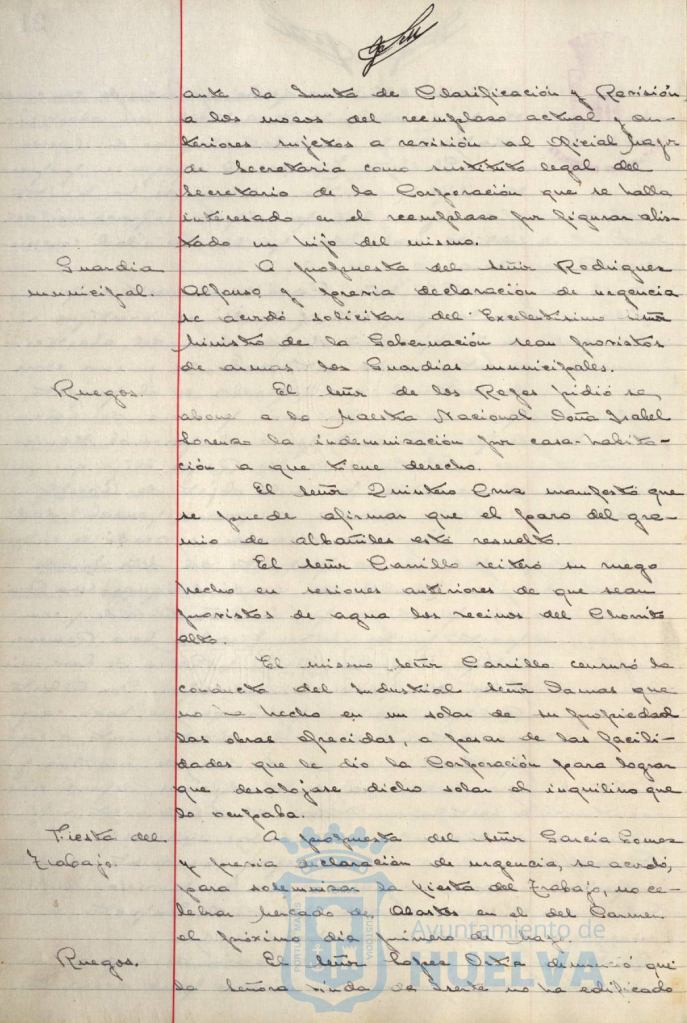 ante la Junta de Clasificación y Revisión
a los mozos del reemplazo actual y an-
teriores sujetos a revisión al Oficial Mayor
de Secretaría como sustituto legal del
Secretario de la Corporación que se halla
interesado en el reemplazo por figurar alis-
tado un hijo del mismo.
Guardia
municipal.
A propuesta del señor Rodriguez
Alfonso y previa declaración de urgencia
se acordó solicitar del Excelentísimo señor
Ministro de la Gobernación sean provistos
de armas los Guardias municipales.
Ruegos.
El señor de los Reyes pidió se
abone a la Maestra Nacional Doña Isabel
Lorenzo la indemnización por casa-habita-
ción a que tiene derecho.
El señor Quintero Cruz manifestó que
se puede afirmar que el paro del gre-
mio de albañiles está resuelto.
El señor Carrillo reiteró su ruego
hecho en sesiones anteriores de que sean
provistos de agua los vecinos del Chorrito
alto.
El mismo señor Carrillo censuró la
conducta del Industrial señor Damas que
no ha hecho en un solar de su propiedad
las obras ofrecidas, a pesar de las facili-
dades que le dio la Corporación para lograr
que desalojase dicho solar el inquilino que
lo ocupaba.
Fiesta del
Trabajo.
A propuesta del señor García Gomez
y previa declaración de urgencia, se acordó,
para solemnizar la Fiesta del Trabajo, no ce-
lebrar Mercado de Abastos en el del Carmen
el próximo día primero de Mayo.
Ruegos.
El señor Lopez denunció que
la señora viuda de no ha edificado
Ayuntamiento de
HUELVA